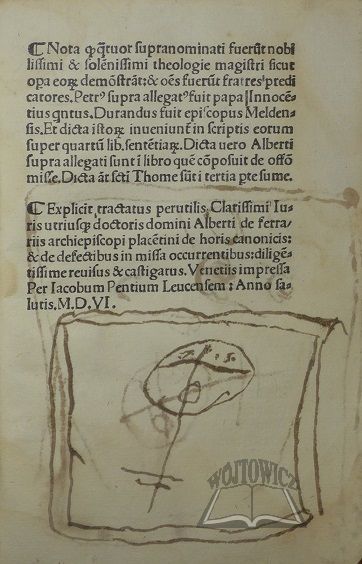 ¶ Nota ꝙ q̃tuor supranominati fuerũt nobi
lissimi & solẽnissimi theologie magistri sicut
oꝑa eoꝝ demõstrãt: & oẽs fuerũt fratres p̃di
catores. Petrꝰ supra allegatꝰ fuit papa Innocẽ
tius qntus. Durandus fuit epiſcopus Melden-
sis. Et dicta istoꝝ inueniunt̃ in scriptis eorum
super quartũ lib. sentẽtiaꝝ. Dicta uero Alberti
supra allegati sunt ĩ libro quẽ cõposuit de offõ
misse. Dicta ãt scti Thome sũt ĩ tertia pte sume.
¶ Explicit tractatus perutilis Clarissimi Iu-
ris utriusq; doctoris domini Alberti de ferra-
riis archiepiscopi placẽtini de horis canonicis:
& de defectibus in missa occurrentibus: diligẽ-
tissime reuisus & castigatus. Venetiis impressa
Per Iacobum Pentium Leucensem: Anno sa-
lutis. M.D.VI.
WÓJTOWICZ